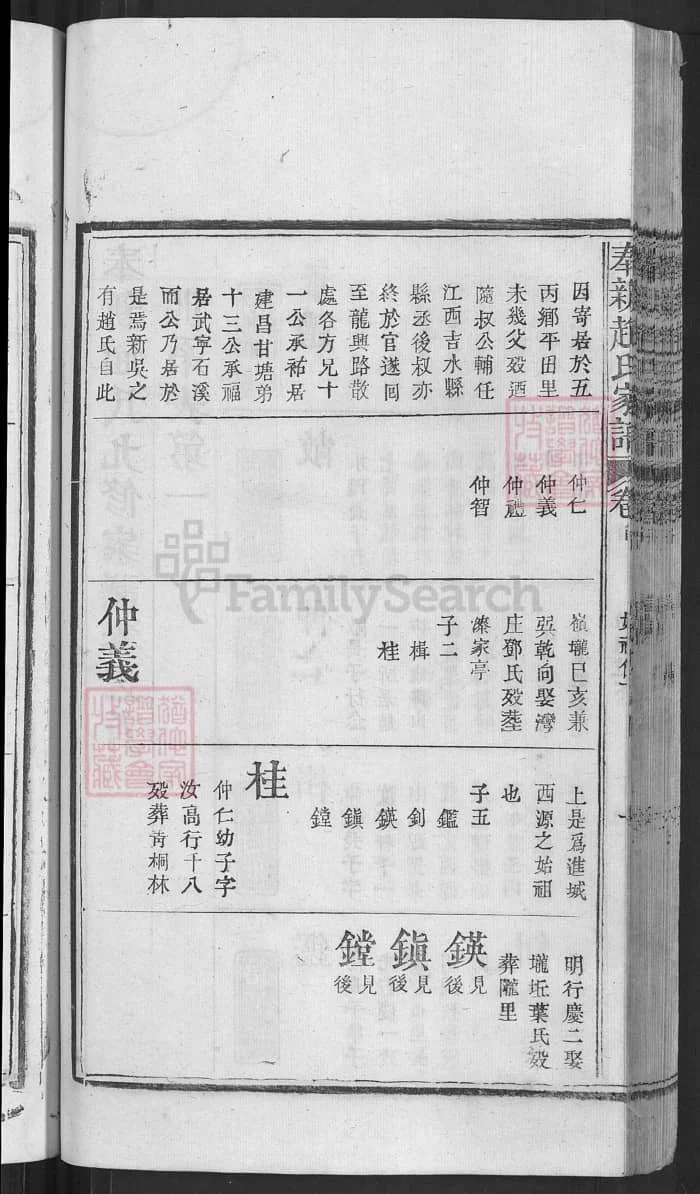 奉新趙氏家譜
卷首
因寄居於五
丙鄉平田里
未幾父歿迺
隨叔公輔任
江西吉水縣
縣丞後叔亦
終於官遂囘
至龍興路散
處各方兄十
一公承祐居
建昌甘塘弟
十三公承福
居武寧石溪
而公乃居於
是焉新吳之
有趙氏自此
仲仁
仲義
仲禮
仲智
嶺壠巳亥兼
巽乾向娶灣
庄鄧氏歿塟
燦家亭
子二
楫
桂
仲義
上是爲進城
西源之始祖
也
子五
鑑
釗
鍈
鎭
鏜
桂
仲仁幼子字
汝高行千八
歿葬靑桐林
明行慶二娶
壠坵葉氏歿
葬隴里
鍈 見後
鎭 見後
鏜 見後
FamilySearch